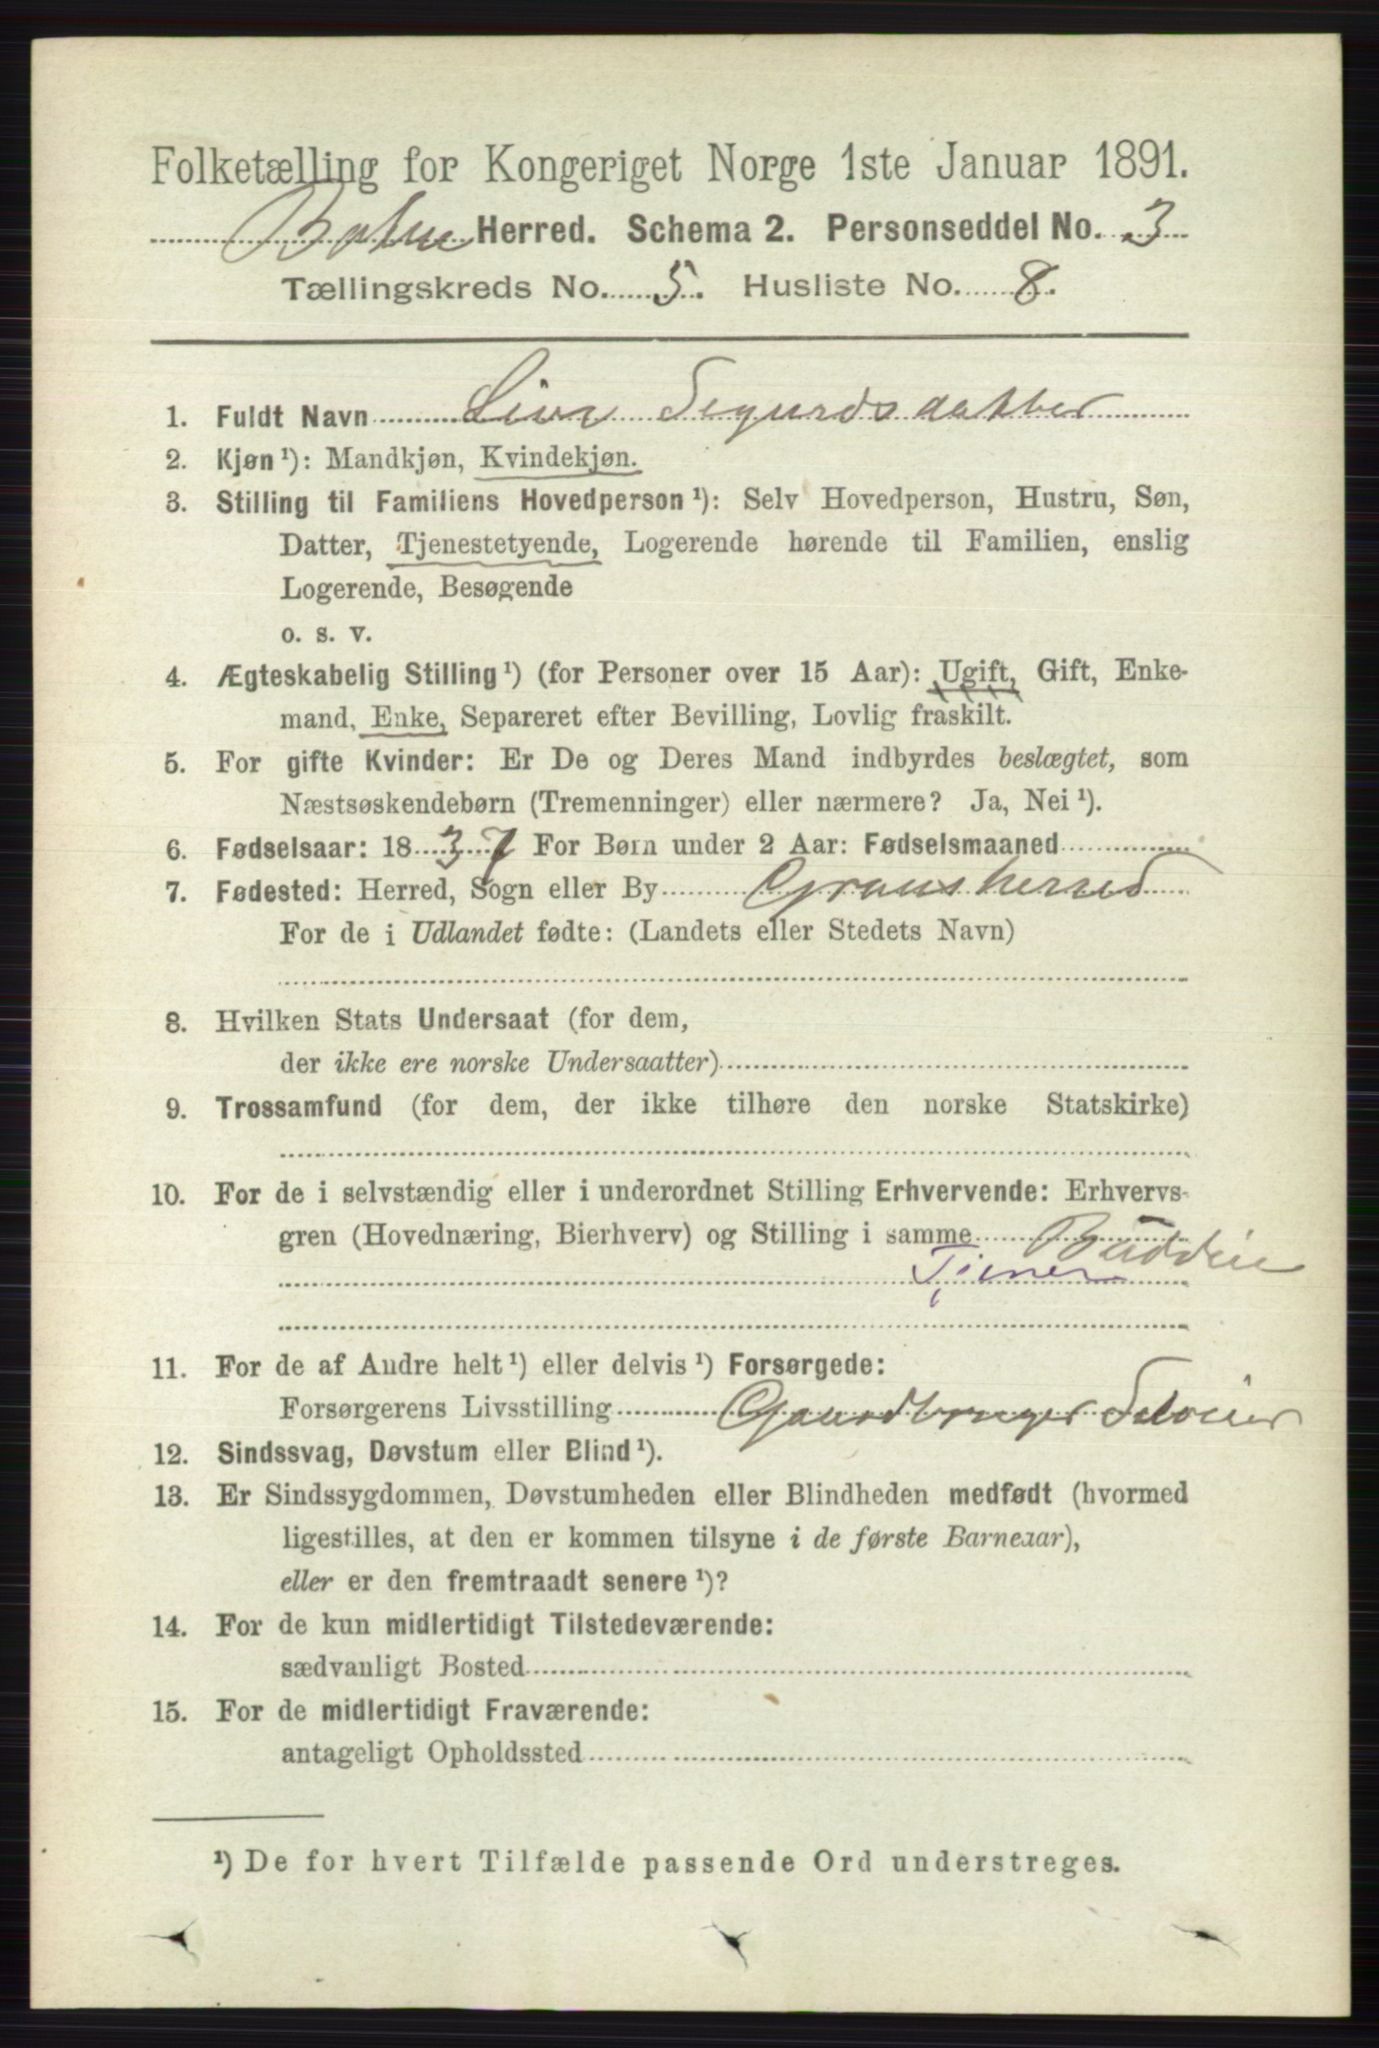 Folketælling for Kongeriget Norge 1ste Januar 1891.
Herred. Schema 2. Personseddel No. 3
Tællingskreds No. 5. Husliste No. 8.
1. Fuldt Navn Live Segurdsdatter
2. Kjøn ¹): Mandkjøn, Kvindekjøn.
3. Stilling til Familiens Hovedperson ¹): Selv Hovedperson, Hustru, Søn,
Datter, Tjenestetyende, Logerende hørende til Familien, enslig
Logerende, Besøgende
o. s. v.
4. Ægteskabelig Stilling ¹) (for Personer over 15 Aar): Ugift, Gift, Enke-
mand, Enke, Separeret efter Bevilling, Lovlig fraskilt.
5. For gifte Kvinder: Er De og Deres Mand indbyrdes beslægtet, som
Næstsøskendebørn (Tremenninger) eller nærmere? Ja, Nei ¹).
6. Fødselsaar: 1837 For Børn under 2 Aar: Fødselsmaaned
7. Fødested: Herred, Sogn eller By Gransherred
For de i Udlandet fødte: (Landets eller Stedets Navn)
8. Hvilken Stats Undersaat (for dem,
der ikke ere norske Undersaatter)
9. Trossamfund (for dem, der ikke tilhøre den norske Statskirke)
10. For de i selvstændig eller i underordnet Stilling Erhvervende: Erhvervs-
gren (Hovednæring, Bierhverv) og Stilling i samme Buddeie
Tjener
11. For de af Andre helt ¹) eller delvis ¹) Forsørgede:
Forsørgerens Livsstilling Gaardbruger Selveier
12. Sindssvag, Døvstum eller Blind ¹).
13. Er Sindssygdommen, Døvstumheden eller Blindheden medfødt (hvormed
ligestilles, at den er kommen tilsyne i de første Barneaar),
eller er den fremtraadt senere ¹)?
14. For de kun midlertidigt Tilstedeværende:
sædvanligt Bosted
15. For de midlertidigt Fraværende:
antageligt Opholdssted
¹) De for hvert Tilfælde passende Ord understreges.